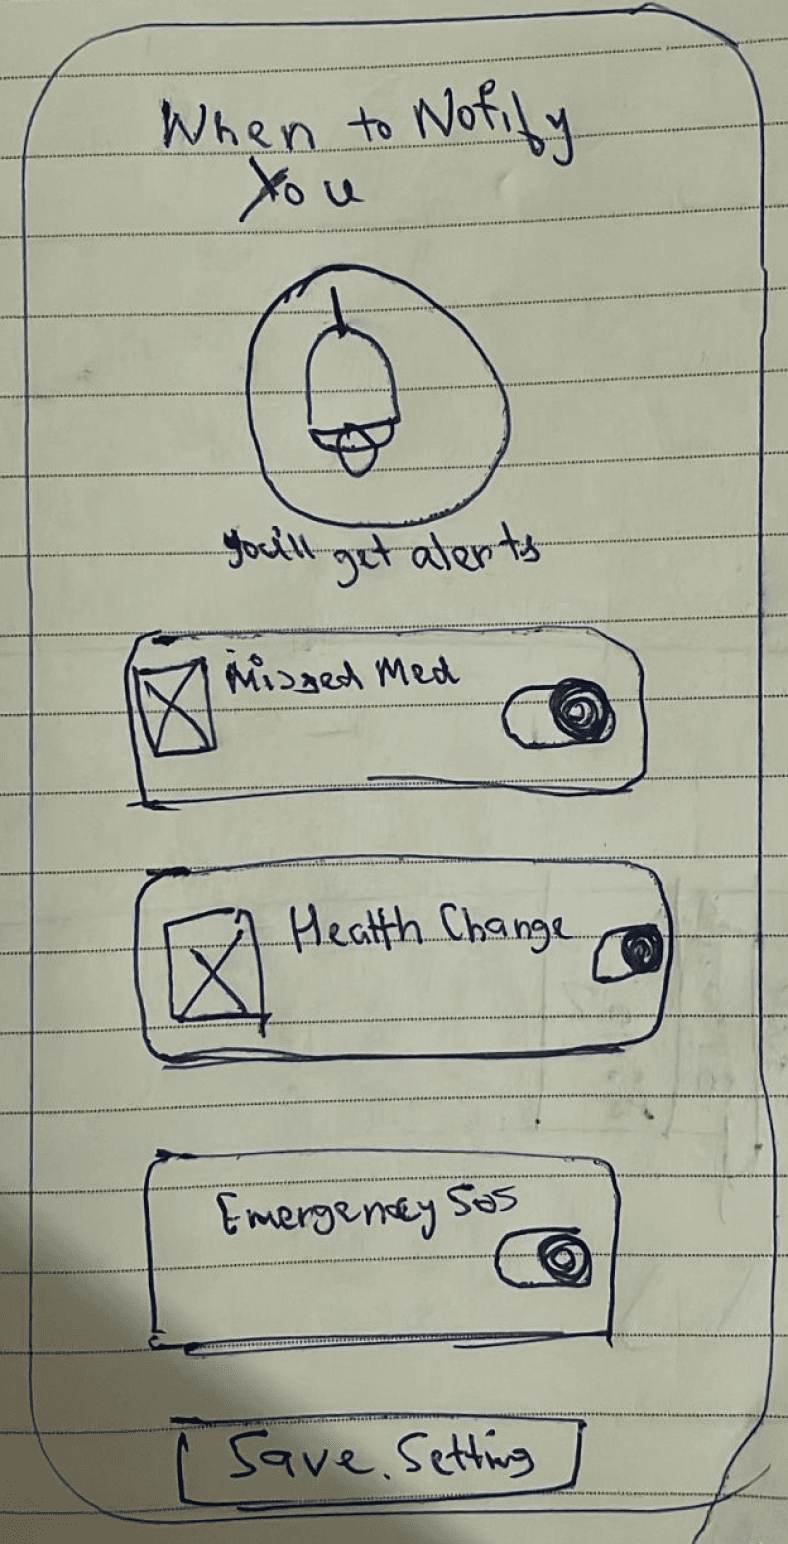 When to Notify
You
you'll get alerts
Missed Med
Health Change
Emergency SOS
Save Setting